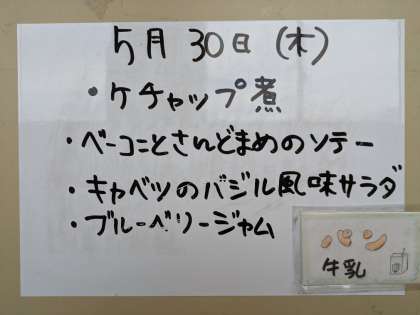 5月30日(木)
・ケチャップ煮
・ベーコンとさんどまめのソテー
・キャベツのバジル風味サラダ
・ブルーベリージャム
パン
牛乳